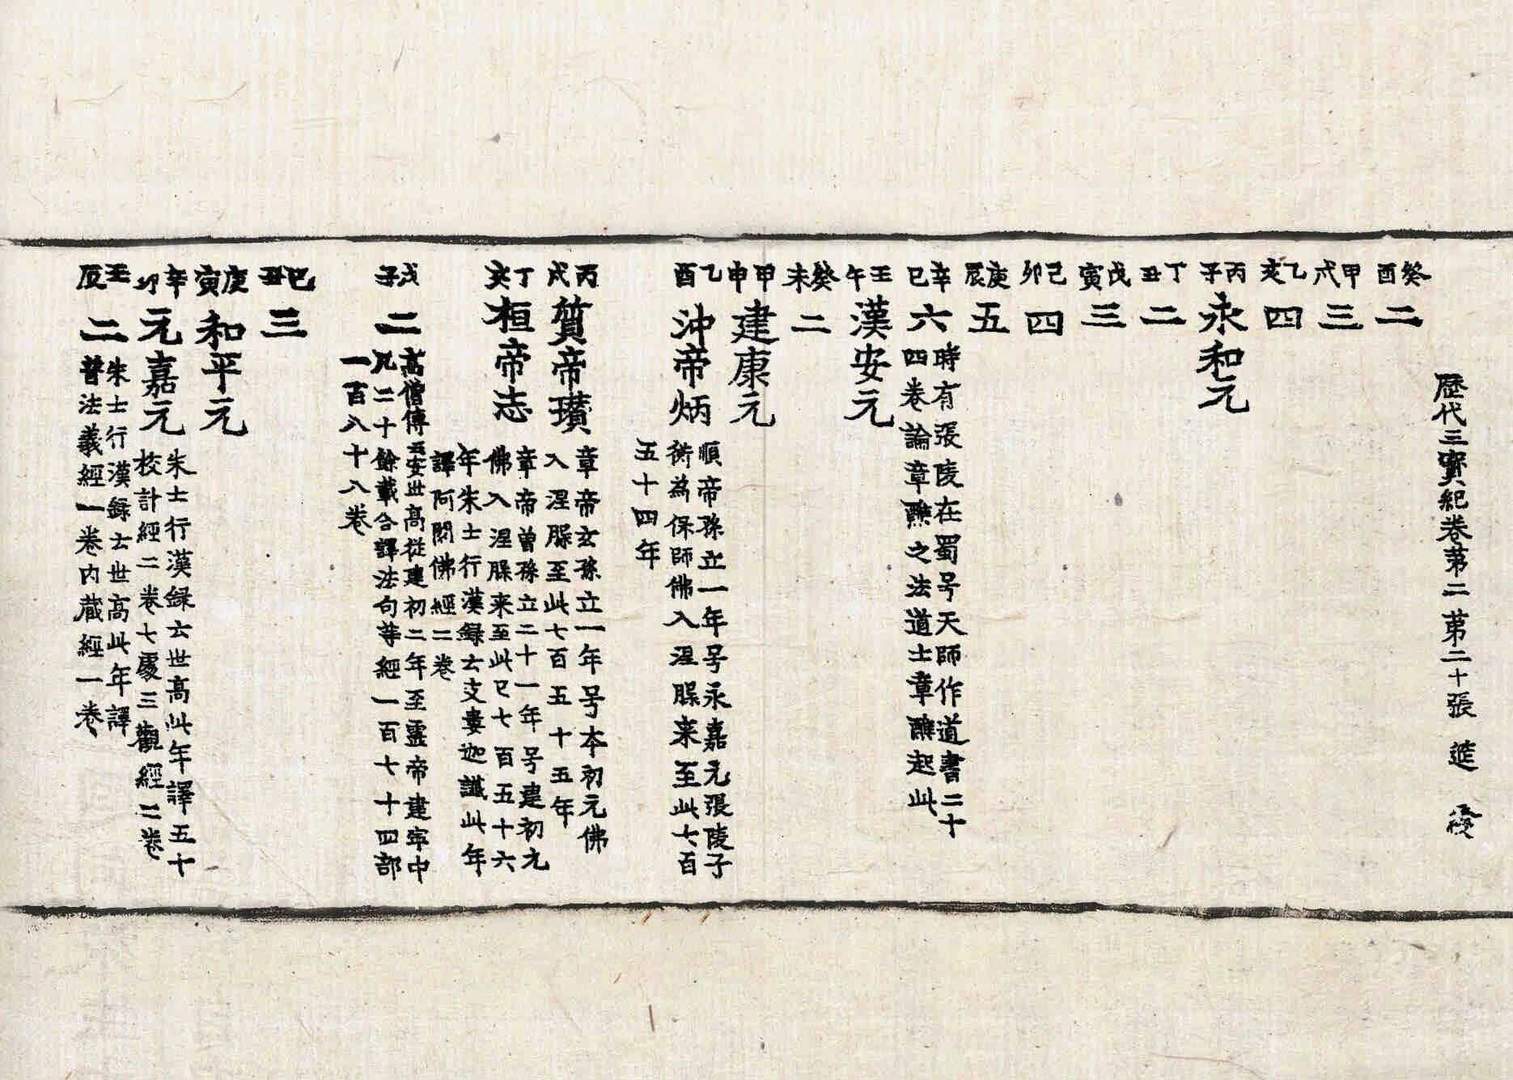 歷代三寶紀卷苐二 苐二十張 莚
癸酉 二
甲戌 三
乙亥 四
丙子 永和元
丁丑 二
戊寅 三
己卯 四
庚辰 五
辛巳 六 時有張陵在蜀号天師作道書二十
四卷論章醮之法道士章醮起此
壬午 漢安元
癸未 二
甲申 建康元
乙酉 沖帝炳 順帝孫立一年号永嘉元張陵子
衡為保師佛入涅槃来至此七百
五十四年
丙戌 質帝瓚 章帝玄孫立一年号夲初元佛
入涅槃至此七百五十五年
丁亥 桓帝志 章帝曾孫立二十一年号建初元
佛入涅槃来至此已七百五十六
年朱士行漢録云支婁迦讖此年
譯阿閦佛經二卷
戊子 二 高僧傳云安世高従建初二年至靈帝建寧中
凡二十餘載合譯法句等經一百七十四部
一百八十八卷
己丑 三
庚寅 和平元
辛卯 元嘉元 朱士行漢録云世高此年譯五十
校計經二卷七處三觀經二卷
壬辰 二 朱士行漢録云世高此年譯
普法義經一卷内藏經一卷